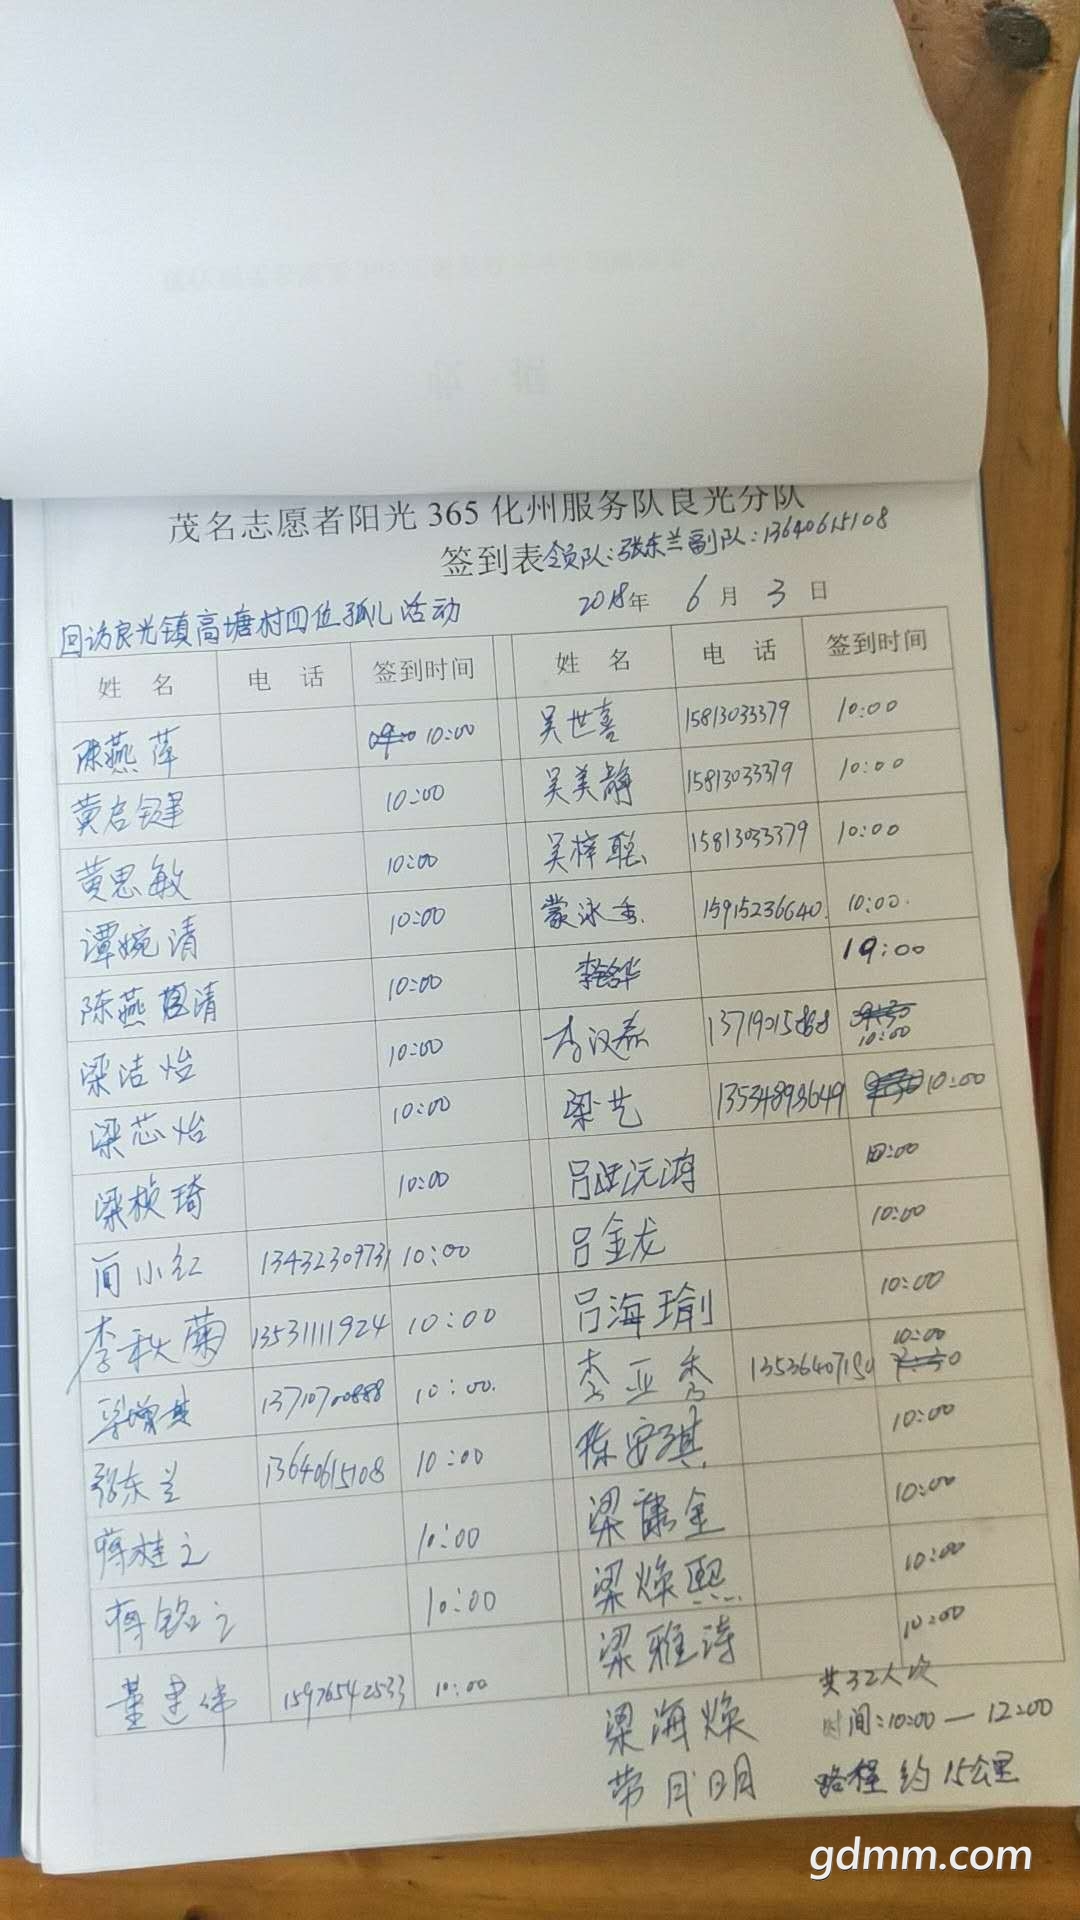 茂名志愿者阳光 365 化州服务队良光分队
签到表 领队:张东兰副队:13640615108
2018年 6 月 3 日
回访良光镇高塘村四位孤儿活动
姓 名 电 话 签到时间 姓 名 电 话 签到时间
陈燕萍 10:00 吴世喜 15813033379 10:00
黄启键 10:00 吴美静 15813033379 10:00
黄思敏 10:00 吴梓聪 15813033379 10:00
谭婉清 10:00 蒙冰秀 15915236640 10:00
陈燕清 10:00 19:00
梁洁怡 10:00 李汉森 10:00
梁芯怡 10:00 梁艺 13534893649 10:00
梁桢琦 10:00 吕沅鸿 10:00
简小红 13432309731 10:00 吕金龙 10:00
李秋菊 13531111924 10:00 吕海瑜 10:00
13710700888 10:00 李亚秀 10:00
张东兰 13640615108 10:00 陈安琪 10:00
蒋桂之 10:00 梁金 10:00
蒋铭之 10:00 梁焕熙 10:00
董建伟 15976542533 10:00 梁雅诗 10:00
梁海焕 共32人次
时间:10:00—12:00
劳月明 路程约15公里
gdmm.com